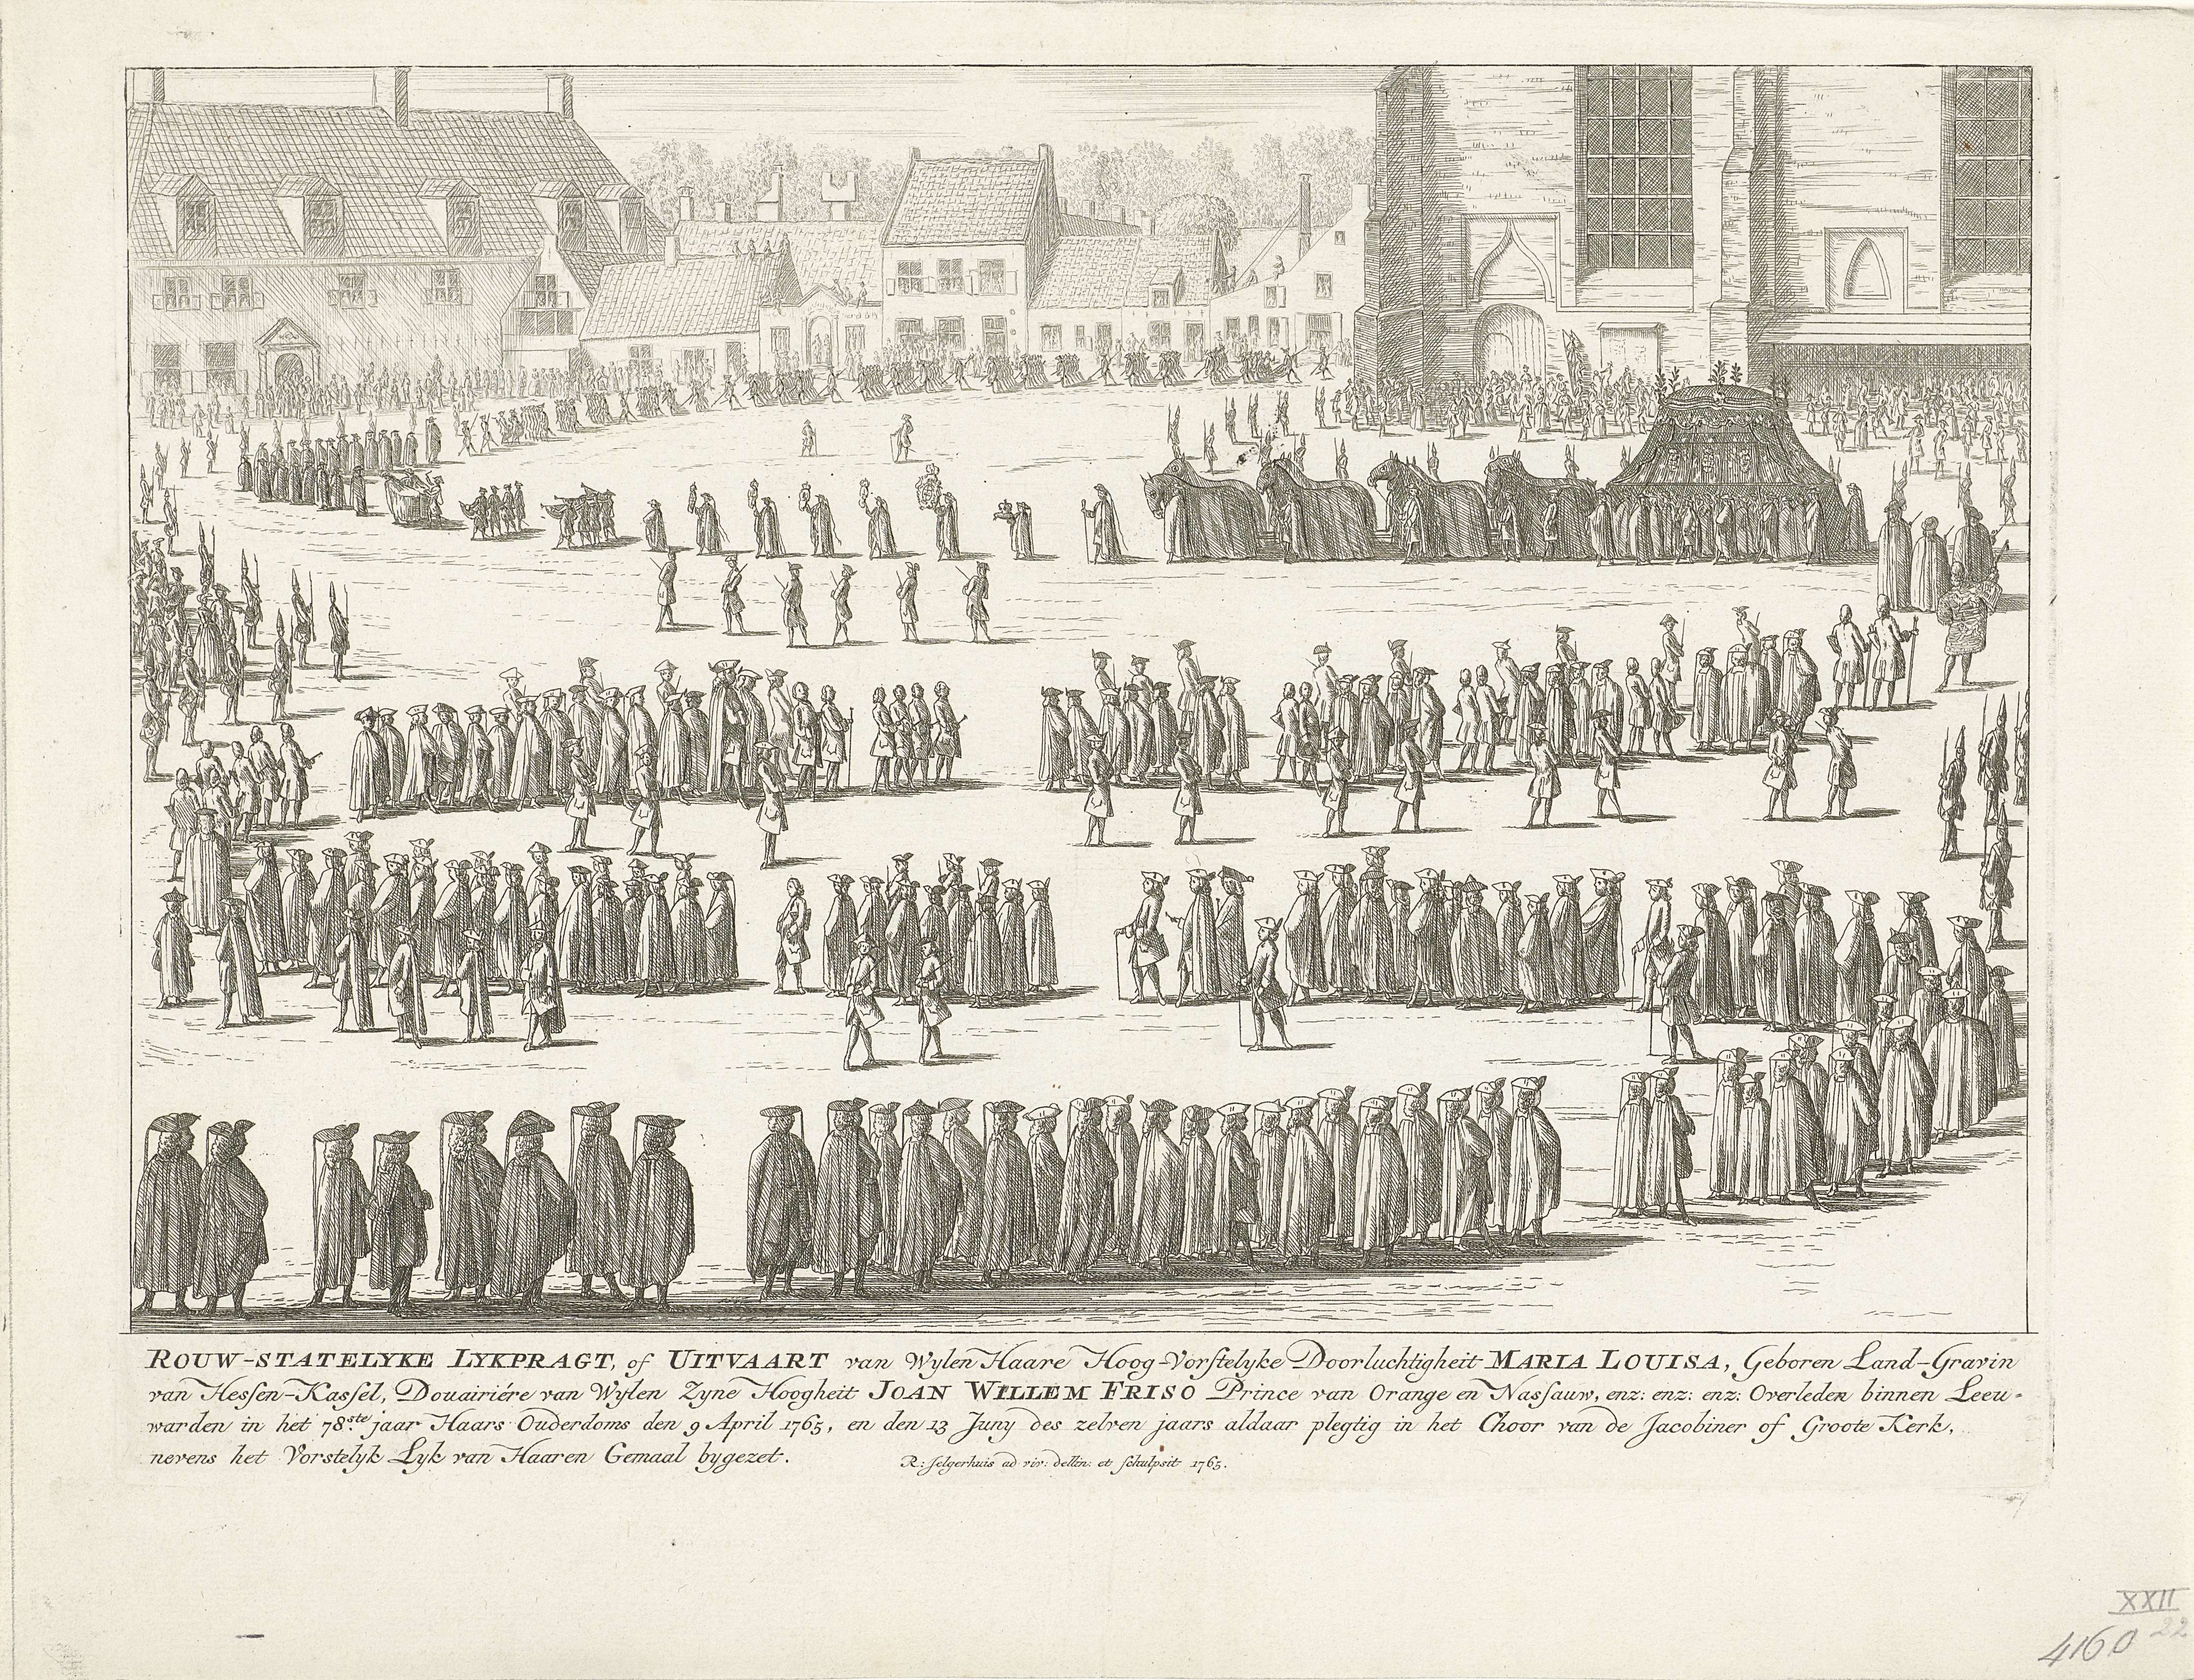 ROUW-STATELYKE LYKPRAGT, of UITVAART van Wylen Haare Hoog-Vorstelyke Doorluchtigheit MARIA LOUISA, Geboren Land-Gravin
van Hessen-Kassel, Douairiére van Wylen Zyne Hoogheit JOAN WILLEM FRISO Prince van Orange en Nassauw, enz: enz: enz: Overleden binnen Leeu-
warden in het 78.ste jaar Haars Ouderdoms den 9 April 1765, en den 13 Juny des zelven jaars aldaar plegtig in het Choor van de Jacobiner of Groote Kerk,
nevens het Vorstelyk Lyk van Haaren Gemaal bygezet.
R: Jelgerhuis ad viv: dellin: et schulpsit 1765.
XXII
22
4160